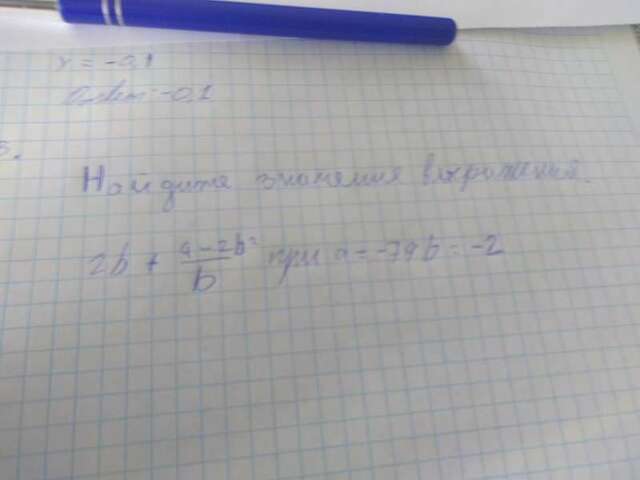 x = -0,1
Ответ: -0,1
3.
Найдите значения выражения.
2b + (a - 2b²)/b при a = -74 b = -2